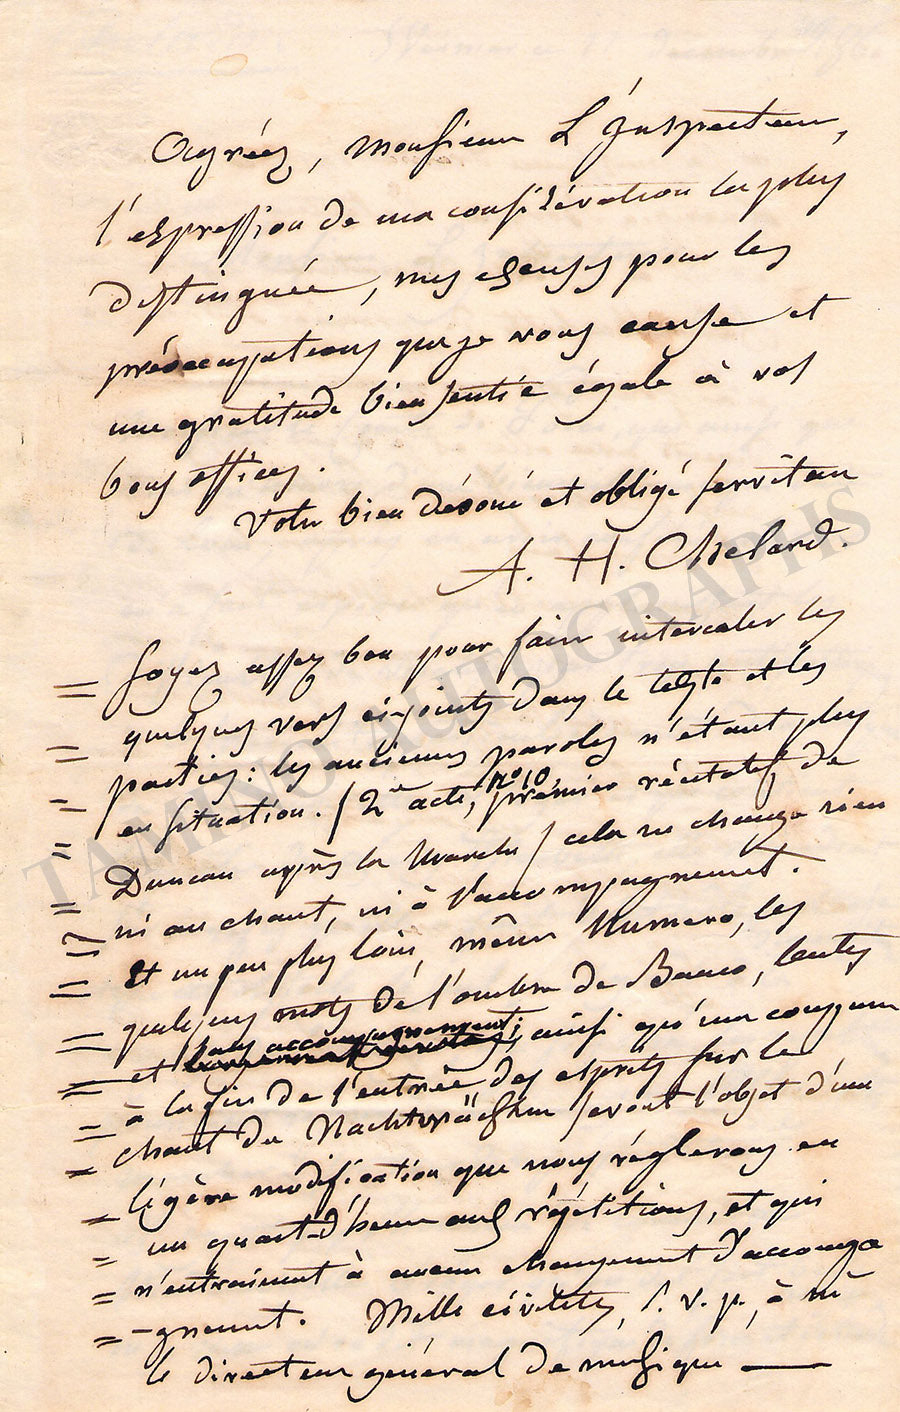 Agréez, Monsieur L'Inspecteur,
l'expression de ma considération la plus
distinguée, mes excuses pour les
préoccupations que je vous cause et
une gratitude bien sentie égale à vos
bons offices.
Votre bien dévoué et obligé serviteur
A. H. Chelard.
= Soyez assez bon pour faire intercaler les
= quelques vers cijoints dans le texte et les
= parties: les anciennes paroles n'étant plus
= en situation. / 2e acte, no 10, premier récitatif de
= Duncan après la Marche / cela ne change rien
= ni au chant, ni à l'accompagnement.
= Et un peu plus loin, même Numero, les
= quelques mots de l'ombre de Banco, lentes
= et sans accompagnement; ainsi qu'une coupure
= à la fin de l'entrée des esprits sur le
= chant du Nachtwächter seront l'objet d'une
= légère modification que nous réglerons en
= un quart-d'heure aux répétitions, et qui
= n'entrainent à aucun changement d'accompa
= -gnement. Mille civilités, s. v. p., à Mr
le directeur général de musique —
TAMINO AUTOGRAPHS